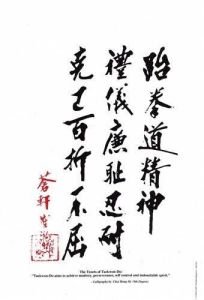 跆拳道精神
禮儀廉耻忍耐
克己百折不屈
蒼軒崔
The Tenets of Taekwon-Do
"Taekwon-Do aims to achieve modesty, perseverance, self control and indomitable spirit."
- Calligraphy by Choi Hong Hi